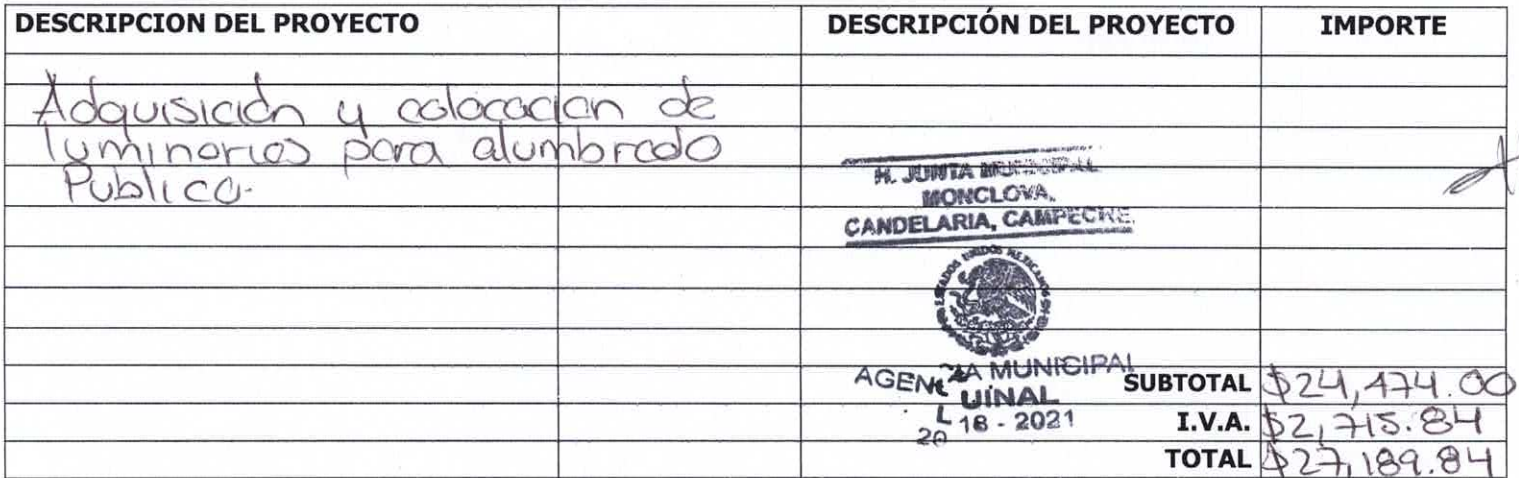 DESCRIPCION DEL PROYECTO
DESCRIPCIÓN DEL PROYECTO
IMPORTE
Adquisición y colocacion de
luminarias para alumbrado
Publico.
H. JUNTA MUNICIPAL
MONCLOVA,
CANDELARIA, CAMPECHE.
ESTADOS UNIDOS MEXICANOS
AGEN IA MUNICIPAL
UINAL
18 - 2021
SUBTOTAL $24,474.00
I.V.A. $2,715.84
TOTAL $27,189.84